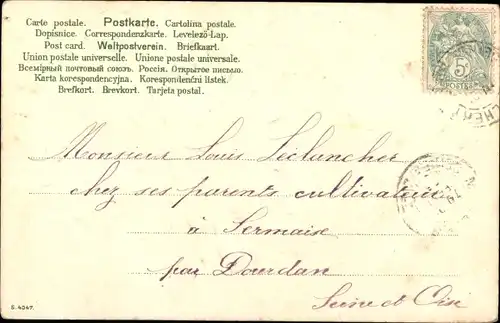 Carte postale. Postkarte. Cartolina postale.
Dopisnice. Correspondenzkarte. Levelező-Lap.
Post card. Weltpostverein. Briefkaart.
Union postale universelle. Unione postale universale.
Всемірный почтовый союзъ. Россія. Открытое письмо.
Karta korespondencyjna. Korespondenční listek.
Brefkort. Brevkort. Tarjeta postal.
5
POSTES
Monsieur Louis Léclancher
chez ses parents cultivateur
à Sermaise
par Dourdan
Seine et Oise
S. 4047.